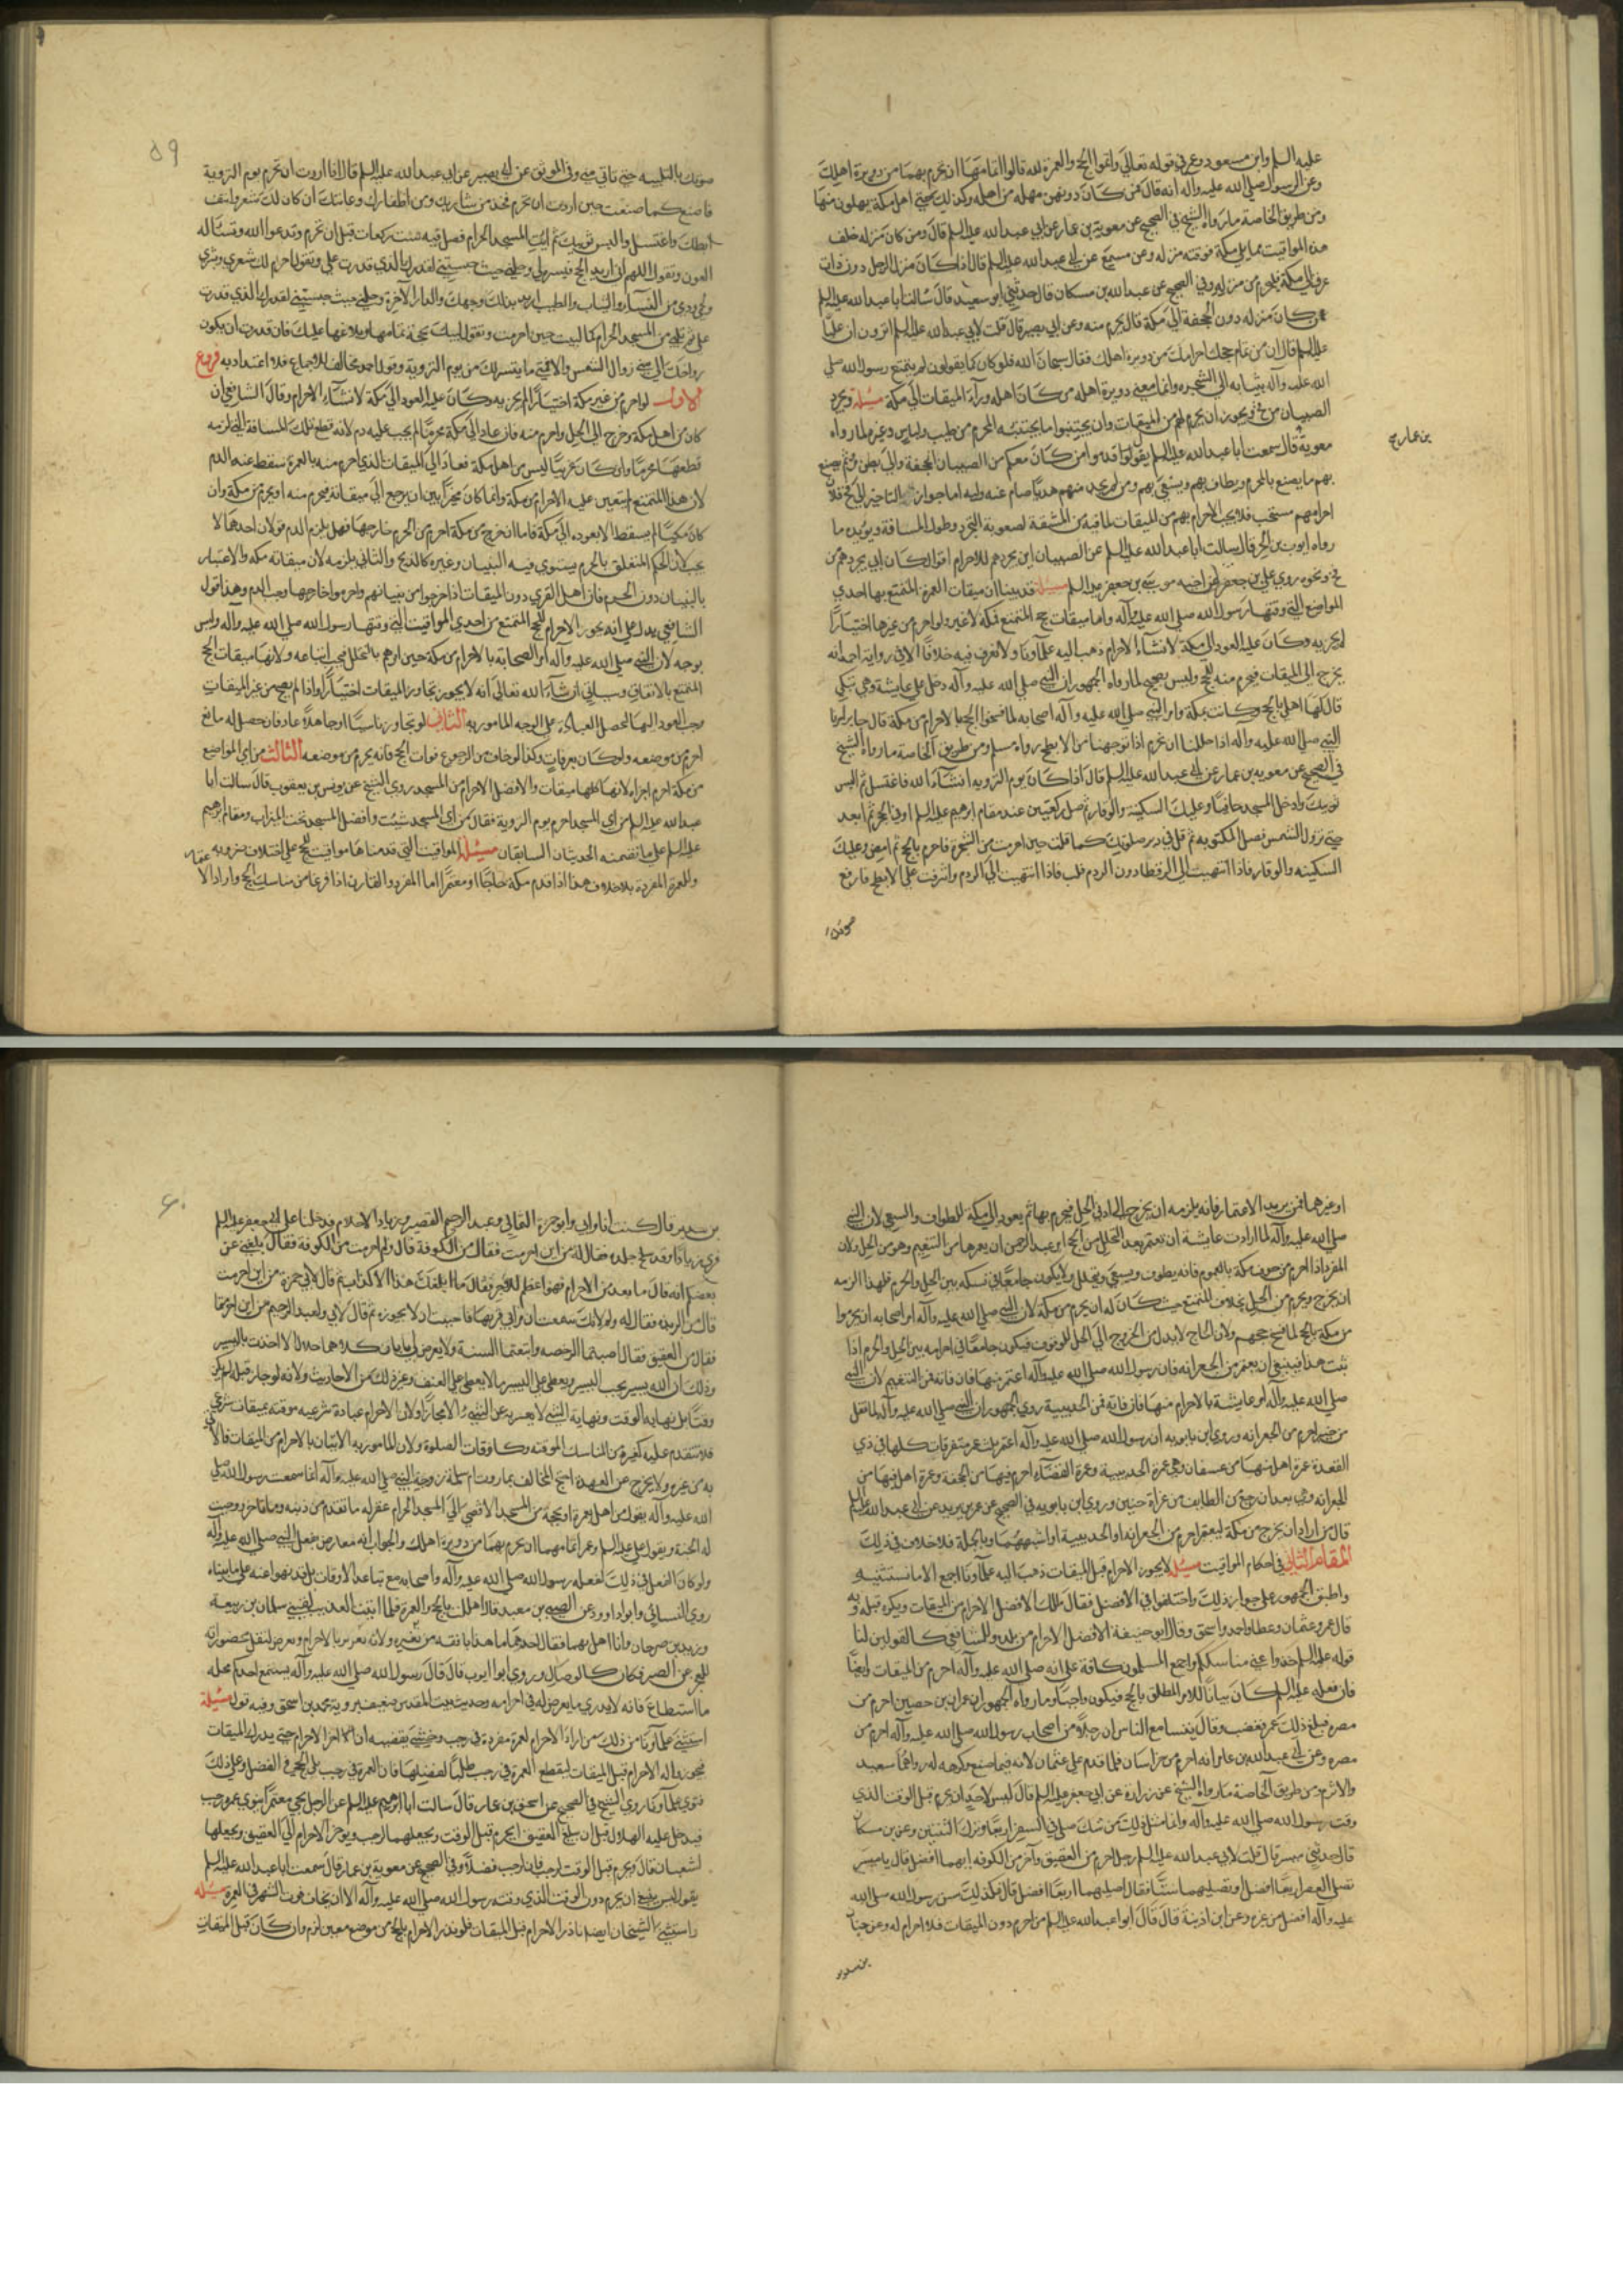 عليه السلم وابن مسعود وعمر في قوله تعالى واتموا الحج والعمرة لله قالوا انما تمامها ان تحرم بهما من دويرة اهلك
وعن الرسول صلى الله عليه واله انه قال فمن كان دونهن مهله من اهله وكذلك حتى اهل مكة يهلون منها
ومن طريق الخاصة ما رواه الشيخ في الصحيح عن معوية بن عمار عن ابي عبد الله عليه السلم قال ومن كان منزله خلف
هذه المواقيت مما يلي مكة فوقته منزله وعن مسمع عن ابي عبد الله عليه السلم قال اذا كان منزل الرجل دون ذات
عرق الى مكة فليحرم من منزله وفي الصحيح عن عبد الله بن مسكان قال حدثني ابو سعيد قال سالت ابا عبد الله عليه السلم
عمن كان منزله دون الجحفة الى مكة قال يحرم منه وعن ابي بصير قال قلت لابي عبد الله عليه السلم يروون ان عليا
عليه السلم قال ان من تمام حجك احرامك من دويرة اهلك فقال سبحان الله فلو كان كما يقولون لم يتمتع رسول الله صلى
الله عليه وآله بثيابه الى الشجره وانما معنى دويرة اهله من كان اهله وراء الميقات الى مكة مسئلة ويجرد
الصبيان من فخ ويجوز ان يحرم لهم من الميقات وان يجتنبوا ما يجتنبه المحرم من طيب ولباس وغيره لما رواه
معوية قال سمعت ابا عبد الله عليه السلم يقول قدموا من كان معكم من الصبيان الى الجحفة والى بطن مر ثم يصنع
بن عمار صح
بهم ما يصنع بالمحرم ويطاف بهم ويسعى بهم ومن لم يجد منهم هديا صام عنه وليه اما جواز التاخير الى فخ فلان
احرامهم مستحب فلا يجب الاحرام بهم من الميقات لما فيه من المشقة لصعوبة التجرد وطول المسافة ويؤيده ما
رواه ايوب بن الحر قال سالت ابا عبد الله عليه السلم عن الصبيان اين نجردهم للاحرام فقال كان ابي يجردهم من
فخ ونحوه روي علي بن جعفر عن اخيه موسى بن جعفر عليه السلم مسئلة قد بينا ان ميقات العمرة المتمتع بها احدى
المواضع التي وقتها رسول الله صلى الله عليه وآله واما ميقات حج المتمتع فمكة لا غير ولو احرم من غيرها اختيارا
لم يجز به وكان عليه العود الى مكة لانشاء الاحرام ذهب اليه علماؤنا ولا نعرف فيه خلافا الا في رواية احمد انه
يخرج الى الميقات فيحرم منه للحج وليس بصحيح لما رواه الجمهور ان النبي صلى الله عليه وآله دخل على عايشة وهي تبكي
قال لها اهلي بالحج وكانت بمكة وامر النبي صلى الله عليه وآله اصحابه لما فسخوا الحج بالاحرام من مكة قال جابر امرنا
النبي صلى الله عليه واله اذا حللنا ان نحرم اذا توجهنا من الابطح رواه مسلم ومن طريق الخاصة ما رواه الشيخ
في الصحيح عن معويه بن عمار عن ابي عبد الله عليه السلم قال اذا كان يوم الترويه ان شاء الله فاغتسل ثم البس
ثوبيك وادخل المسجد حافيا وعليك السكينة والوقار ثم صل ركعتين عند مقام ابرهيم عليه السلم او في الحجر ثم اقعد
حتى تزول الشمس فصل المكتوبه ثم قل في دبر صلوتك كما قلت حين احرمت من الشجرة فاحرم بالحج ثم امض وعليك
السكينه والوقار فاذا انتهيت الى الرقطا دون الردم فلب فاذا انتهيت الى الردم واشرفت على الابطح فارفع
صوتك
59
صوتك بالتلبيه حتى تاتي منى وفي الموثق عن ابي بصير عن ابي عبد الله عليه السلم قال اذا اردت ان تحرم يوم التروية
فاصنع كما صنعت حين اردت ان تحرم فخذ من شاربك ومن اظفارك وعانتك ان كان لك شعر وانتف
ابطك واغتسل والبس ثوبيك ثم ايت المسجد الحرام فصل فيه ست ركعات قبل ان تحرم وتدعوا الله وتسئاله
العون وتقول اللهم اني اريد الحج فيسره لي وحلني حيث حبستني لقدرك الذي قدرت علي وتقول احرم لك شعري وبشري
ولحمي ودمي من النساء والثياب والطيب اريد بذلك وجهك والدار الآخرة وحلني حيث حبستني لقدرك الذي قدرت
علي ثم تلبي من المسجد الحرام كما لبيت حين احرمت وتقول لبيك بحجة تمامها وبلاغها عليك فان قدرت ان يكون
رواحك الى منى زوال الشمس والا فمتى ما تيسر لك من يوم التروية وقول احمد مخالف للاجماع فلا اعتداد به فروع
الاول لو احرم من غير مكة اختيارا لم يجزيه وكان عليه العود الى مكة لانشاء الاحرام وقال الشافعي ان
كان من اهل مكة وخرج الى الحل واحرم منه فان عاد الى مكة محرما لم يجب عليه دم لانه قطع تلك المسافة التي لزمه
قطعها محرما وان كان غريبا ليس من اهل مكة فعاد الى الميقات الذي احرم منه بالعمرة سقط عنه الدم
لان هذا المتمتع لم يتعين عليه الاحرام من مكة وانما كان مخيرا بين ان يرجع الى ميقاته فيحرم منه او يحرم من مكة وان
كان مكيا لم يسقط الا بعوده الى مكة فاما ان خرج من مكة احرم من الحرم خارجها فهل يلزم الدم قولان احدهما لا
يجب لان الحكم المتعلق بالحرم يستوي فيه البنيان وغيره كالذبح والثاني يلزمه لان ميقاته مكه والاعتبار
بالبنيان دون الحرم فان اهل القرى دون الميقات اذا خرجوا من بنيانهم واحرموا خارجها وجب الدم وهذا قول
الشافعي يدل على انه يجوز الاحرام للحج المتمتع من احدى المواقيت التي وقتها رسول الله صلى الله عليه وآله وليس
بوجه لان النبي صلى الله عليه وآله امر الصحابة بالاحرام من مكة حين امرهم بالتحلل فيجب اتباعه ولانها ميقات الحج
المتمتع بالاتفاق وسياتي ان شاء الله تعالى انه لا يجوز تجاوز الميقات اختيارا واذا لم يصح من غير الميقات
وجب العود اليها لتحصل العبادة على الوجه المامور به الثاني لو تجاوز ناسيا او جاهلا عاد فان حصل له مانع
احرم من موضعه ولو كان بعرفات وكذا لو خاف من الرجوع فوات الحج فانه يحرم من موضعه الثالث من اي المواضع
من مكة احرم اجزاه لانها كلها ميقات والافضل الاحرام من المسجد روى الشيخ عن يونس بن يعقوب قال سالت ابا
عبد الله عليه السلم من اي المسجد احرم يوم الروية فقال من اي المسجد شئت وافضل المسجد تحت الميزاب ومقام ابرهيم
عليه السلم على ما تضمنه الحديثان السابقان مسئلة المواقيت التي قدمناها مواقيت للحج على اختلاف ضروبه
وللعمرة المفردة بلا خلاف هذا اذا قدم مكة حاجا او معتمرا اما المفرد والقارن اذا فرغا من مناسك الحج وارادا الا
او غيرهما فمن يريد الاعتمار فانه يلزمه ان يخرج الى ادنى الحل فيحرم بها ثم يعود الى مكة للطواف والسعي لان النبي
صلى الله عليه وآله لما ارادت عايشة ان تعتمر بعد التحلل من الحج امر عبد الرحمن ان يعمرها من التنعيم وهو من الحل ولان
المفرد اذا احرم من جوف مكة بالعموم فانه يطوف ويسعى ويتحلل ولا يكون جامعا في نسكه بين الحل والحرم فلهذا الزمه
ان يخرج ويحرم من الحل بخلاف المتمتع حيث كان له ان يحرم من مكة لان النبي صلى الله عليه وآله امر اصحابه ان يحرموا
من مكة بالحج لما فسخ حجهم ولان الحاج لا بد له من الخروج الى الحل للوقوف فيكون جامعا في احرامه بين الحل والحرم اذا
ثبت هذا فينبغي ان يعتمر من الجعرانه فان رسول الله صلى الله عليه وآله اعتمر منها فان فاته فمن التنعيم لان النبي
صلى الله عليه وآله امر عايشة بالاحرام منها فان فاته فمن الحديبية روى الجمهور ان النبي صلى الله عليه وآله لما قفل
من حنين احرم من الجعرانه وروى ابن بابويه ان رسول الله صلى الله عليه وآله اعتمر ثلث عمر متفرقات كلها في ذي
القعدة عمرة اهل منها من عسفان وهي عمرة الحديبية وعمرة القضاء احرم فيها من الجحفة وعمرة اهل فيها من
الجعرانه وهي بعد ان رجع من الطايف من غزاة حنين وروى ابن بابويه في الصحيح عن عمر بن يزيد عن ابي عبد الله عليه السلم
قال من اراد ان يخرج من مكة ليعتمر احرم من الجعرانه او الحديبية او اشبههما وبالجملة فلا خلاف في ذلك
المقام الثاني في احكام المواقيت مسئلة لا يجوز الاحرام قبل الميقات ذهب اليه علماؤنا اجمع الا ما نستثنيه
واطبق الجمهور على جواز ذلك واختلفوا في الافضل فقال مالك الافضل الاحرام من الميقات ويكره قبله وبه
قال عمر وعثمان وعطا واحمد واسحق وقال ابو حنيفة الافضل الاحرام من بلده وللشافعي كالقولين لنا
قوله عليه السلم خذوا عني مناسككم واجمع المسلمون كافة على انه صلى الله عليه وآله احرم من الميقات ايضا
فان فعله عليه السلم كان بيانا للامر المطلق بالحج فيكون واجبا وما رواه الجمهور ان عمران بن حصين احرم من
مصره فبلغ ذلك عمر فغضب وقال يتسامع الناس ان رجلا من اصحاب رسول الله صلى الله عليه وآله احرم من
مصره وعن ان عبد الله بن عامر انه احرم من خراسان فلما قدم على عثمان لامه فيما صنع وكرهه له رواهما سعيد
والاثرم ومن طريق الخاصة ما رواه الشيخ عن زرارة عن ابي جعفر عليه السلم قال ليس لاحد ان يحرم قبل الوقت الذي
وقت رسول الله صلى الله عليه وآله وانما مثل ذلك من صلى في السفر اربعا وترك الثنتين وعن بن مسكان
قال حدثني ميسر قال قلت لابي عبد الله عليه السلم رجل احرم من العقيق وآخر من الكوفه ايهما افضل قال يا ميسر
تصلي العصر اربعا افضل او تصليهما ستا فقال اصليهما اربعا افضل قال فكذلك سنن رسول الله صلى الله
عليه وآله افضل من غيره وعن ابن اذينة قال قال ابو عبد الله عليه السلم من احرم دون الميقات فلا احرام له وعن حنان
بن سدير
60
بن سدير قال كنت انا وابي وابو حمزة الثمالي وعبد الرحيم القصير وزياد الاحلام فدخلنا على ابي جعفر عليه السلم
فراى زيادا وقد تسلخ جلده فقال له من اين احرمت فقال من الكوفة قال ولم احرمت من الكوفة فقال بلغني عن
بعضكم انه قال ما بعد من الاحرام فهو اعظم للاجر فقال ما بلغك هذا الا كذاب ثم قال لابي حمزة من اين احرمت
قال من الربذه فقال له ولم لانك سمعت ان قبر ابي ذر بها فاحببت ان لا تجوزه ثم قال لابي ولعبد الرحيم من اين احرمتما
فقالا من العقيق فقال اصبتما الرخصه واتبعتما السنة ولا يعرض لي بابان كلاهما حلال الا اخذت باليسير
وذلك ان الله يسير يحب اليسير ويعطي على اليسير ما لا يعطي على العنف وغير ذلك من الاحاديث ولانه لو جاز قبله لم يكن
وقتا بل نهاية الوقت ونهاية الشيء لا يعبر به عن الشيء الا مجازا ولان الاحرام عبادة شرعيه موقته بميقات شرعي
فلا تتقدم عليه كغيره من المناسك الموقته وكاوقات الصلوة ولان المامور به الاتيان بالاحرام من الميقات فالآتي
به من غيره لا يخرج عن العهدة احتج المخالف بما روت ام سلمة زوجة النبي صلى الله عليه وآله انها سمعت رسول الله صلى
الله عليه وآله يقول من اهل بعمرة او بحجة من المسجد الاقصى الى المسجد الحرام غفر له ما تقدم من ذنبه وما تاخر ووجبت
له الجنة وبقول علي عليه السلم وعمر اتمامهما ان تحرم بهما من دويرة اهلك والجواب انه معارض بفعل النبي صلى الله عليه وآله
ولو كان الفضل في ذلك لفعله رسول الله صلى الله عليه وآله واصحابه مع تباعد الاوقات بل قد نهوا عنه على ما بيناه
روى النسائي وابو داوود عن الصبي بن معبد قال اهللت بالحج والعمرة فلما اتيت العذيب لقيني سلمان بن ربيعة
وزيد بن صوحان وانا اهل بهما فقال احدهما ما هذا بافقه من بعيره ولانه تغرير بالاحرام وتعرض لفعل محظوراته
للعجز عن الصبر فكان كالوصال وروى ابو ايوب قال قال رسول الله صلى الله عليه وآله يستمتع احدكم بحله
ما استطاع فانه لا يدري ما يعرض له في احرامه وحديث بيت المقدس ضعيف يرويه محمد بن اسحق وفيه قول مسئلة
استثنى علماؤنا من ذلك من اراد الاحرام لعمرة مفردة في رجب وخشي تقضيه ان اخر الاحرام حتى يدرك الميقات
فجوزوا له الاحرام قبل الميقات ليقطع العمرة في رجب طلبا لفضيلها فان العمرة في رجب تلي الحج في الفضل وعلى ذلك
فتوى علماؤنا روى الشيخ في الصحيح عن اسحق بن عمار قال سالت ابا ابرهيم عليه السلم عن الرجل يجيء معتمرا ينوي عمرة رجب
فيدخل عليه الهلال قبل ان يبلغ العقيق ايحرم قبل الوقت ويجعلها لرجب او يؤخر الاحرام الى العقيق ويجعلها
لشعبان قال يحرم قبل الوقت لرجب فان لرجب فضلا وفي الصحيح عن معوية بن عمار قال سمعت ابا عبد الله عليه السلم
يقول ليس ينبغي ان يحرم دون الوقت الذي وقته رسول الله صلى الله عليه وآله الا ان يخاف فوت الشهر في العمرة مسئله
واستثنى الشيخان ايضا ناذر الاحرام قبل الميقات فلو نذر الاحرام بالحج من موضع معين لزم وان كان قبل الميقات